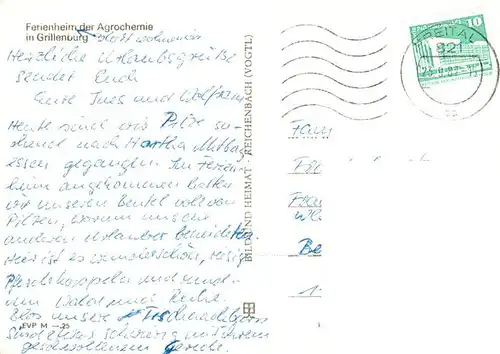 Ferienheim der Agrochemie
in Grillenburg dort wohnen wir
Herzliche Urlaubsgrüße
sendet Euch
Eure Ines und Wolfram
Heute sind wir Pilze su-
chend nach Hartha Mittag
essen gegangen. Im Ferien-
heim angekommen hatten
wir unseren Beutel voll von
Pilzen, worum uns die
anderen Urlauber beneideten.
Hier ist es wunderschön, riesige
Pferdekoppeln und rund-
um Wald und Ruhe.
Blos unsere Tischnachbarn
sind etwas schaurig mit ihrem
geschwollenen Gerede.
EVP M — 25
BILD UND HEIMAT REICHENBACH (VOGTL)
FREITAL
821
10
Fam
Be
1